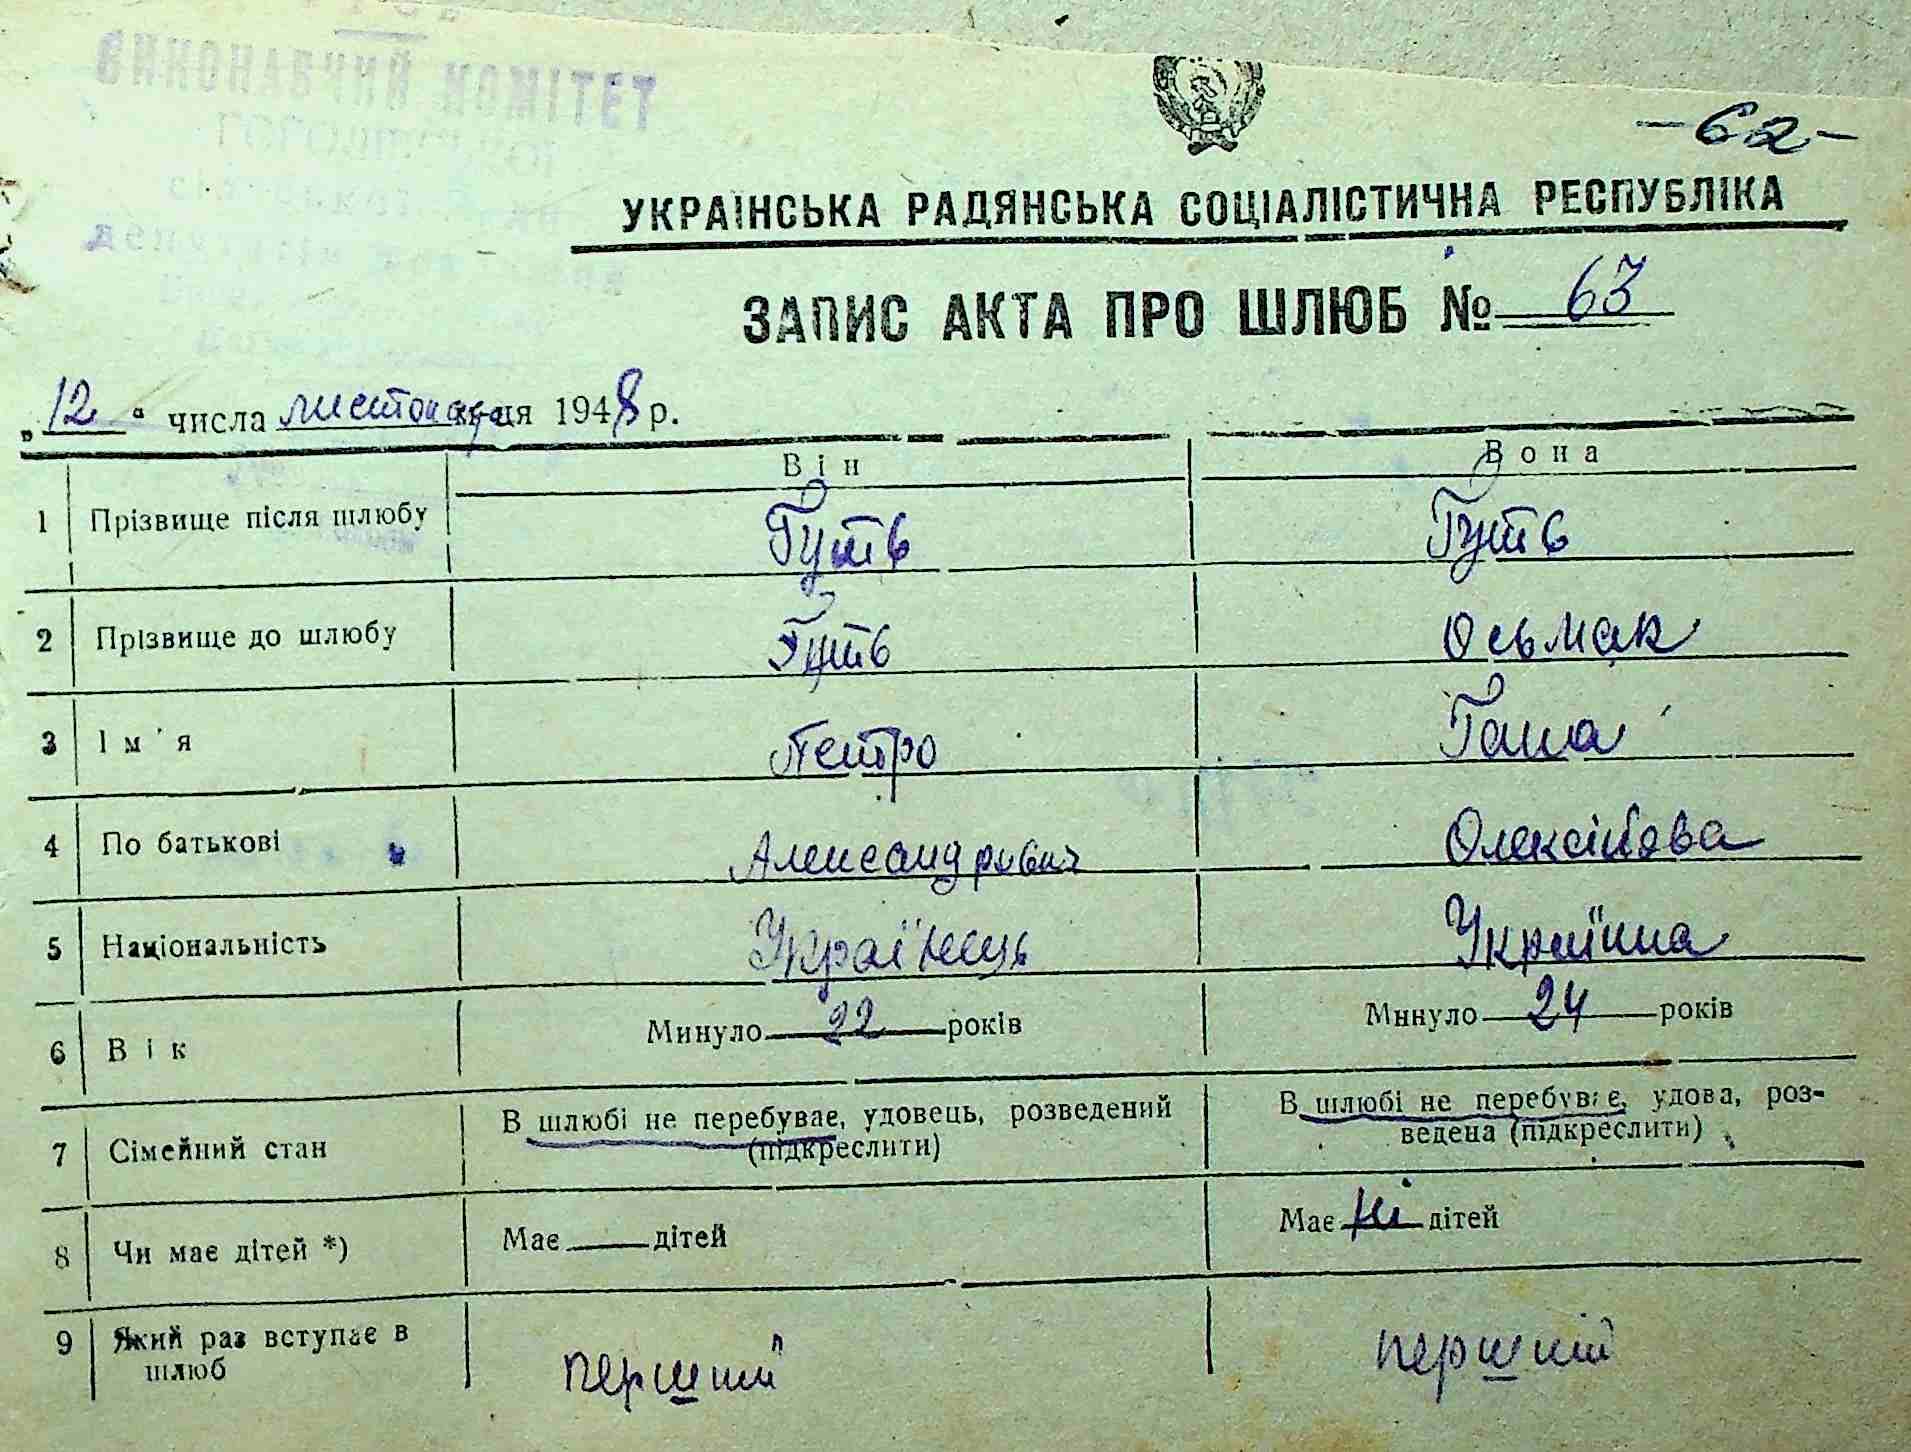 ВИКОНАВЧИЙ КОМІТЕТ
-62-
УКРАЇНСЬКА РАДЯНСЬКА СОЦІАЛІСТИЧНА РЕСПУБЛІКА
ЗАПИС АКТА ПРО ШЛЮБ № 63
„12“ числа листопада ця 1948 р.
Він Вона
1 Прізвище після шлюбу Гуть Гуть
2 Прізвище до шлюбу Гуть Осьмак
3 Ім'я Петро Ганна
4 По батькові Александрович Олексіївна
5 Національність Українець Українка
6 Вік Минуло 22 років Минуло 24 років
7 Сімейний стан В шлюбі не перебуває, удовець, розведений В шлюбі не перебуває, удова, роз-
(підкреслити) ведена (підкреслити)
8 Чи має дітей *) Має дітей Має ні дітей
9 Який раз вступає в
шлюб перший перший